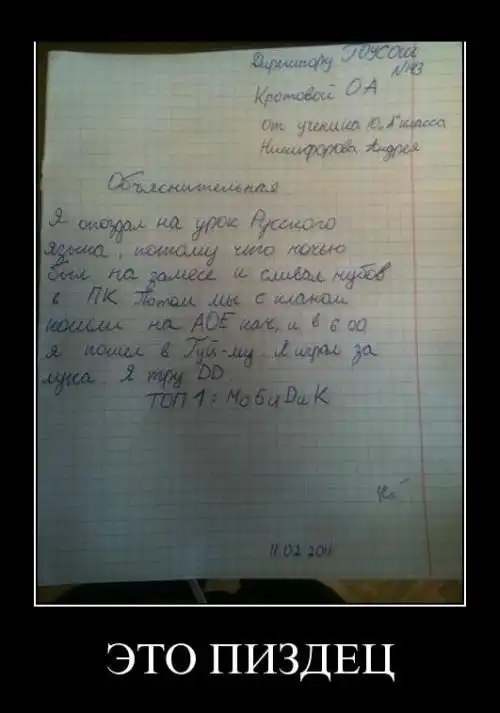 Директору ГОУСОШ
№143
Кротовой ОА
от ученика 10 "А" класса
Никифорова Андрея
Объяснительная.
Я опоздал на урок Русского
языка, потому что ночью
был на замесе и сливал нубов
в ПК. Потом мы с кланом
пошли на АОЕ кач, и в 6 00
я пошел в Гуй-му. Я играл за
лука. Я тру DD
ТОП 1: МоБиDиК
11.02.2011
ЭТО ПИЗДЕЦ